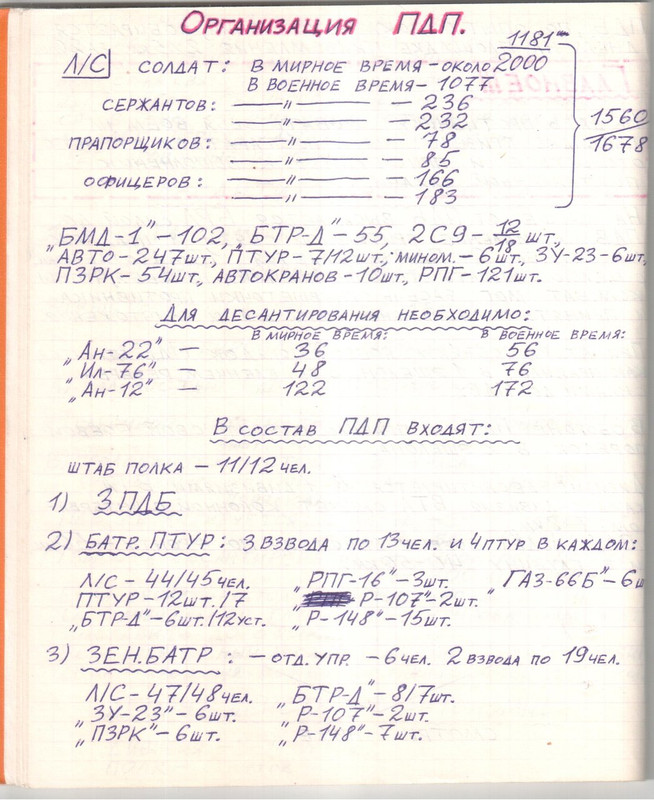 Организация ПДП.
1181
Л/С СОЛДАТ: В МИРНОЕ ВРЕМЯ - ОКОЛО 2000
В ВОЕННОЕ ВРЕМЯ - 1077
СЕРЖАНТОВ: —— „ —— - 236
—— „ —— - 232
ПРАПОРЩИКОВ: —— „ —— - 78
—— „ —— - 85
ОФИЦЕРОВ: —— „ —— - 166
—— „ —— - 183
1560
1678
„БМД-1" - 102, „БТР-Д" - 55, 2С9 - 12/18 шт,
АВТО - 247 шт., ПТУР - 7/12 шт., МИНОМ. - 6 шт, ЗУ-23 - 6 шт,
ПЗРК - 54 шт, АВТОКРАНОВ - 10 шт., РПГ - 121 шт.
Для десантирования необходимо:
В МИРНОЕ ВРЕМЯ: В ВОЕННОЕ ВРЕМЯ:
„Ан-22" — 36 56
„Ил-76" — 48 76
„Ан-12" — 122 172
В состав ПДП входят:
ШТАБ ПОЛКА - 11/12 ЧЕЛ.
1) 3 ПДБ
2) БАТР. ПТУР: 3 ВЗВОДА ПО 13 ЧЕЛ. И 4 ПТУР В КАЖДОМ:
Л/С - 44/45 ЧЕЛ. „РПГ-16" - 3 шт. „ГАЗ-66Б" - 6 ш
ПТУР - 12 шт./7 Р-107" - 2 шт.
„БТР-Д" - 6 шт./12 уст. „Р-148" - 15 шт.
3) ЗЕН. БАТР: - ОТД. УПР. - 6 ЧЕЛ. 2 ВЗВОДА ПО 19 ЧЕЛ.
Л/С - 47/48 ЧЕЛ. „БТР-Д" - 8/7 шт.
„ЗУ-23" - 6 шт. „Р-107" - 2 шт.
„ПЗРК" - 6 шт. „Р-148" - 7 шт.